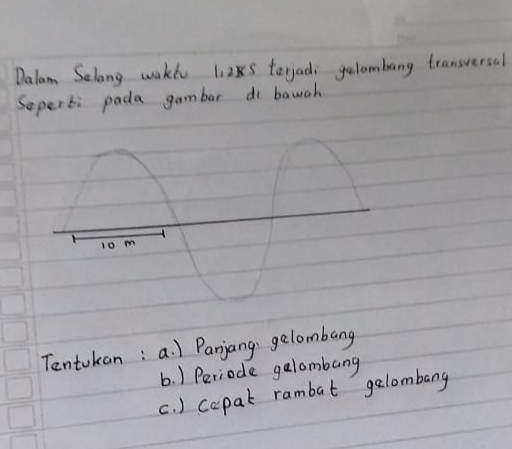 Dalam Selang waktu terjadi gelombang transversal
Seperti pada gambar di bawah
10 m
Tentukan : a.) Panjang gelombang
b.) Periode gelombang
c.) Cepat rambat gelombang